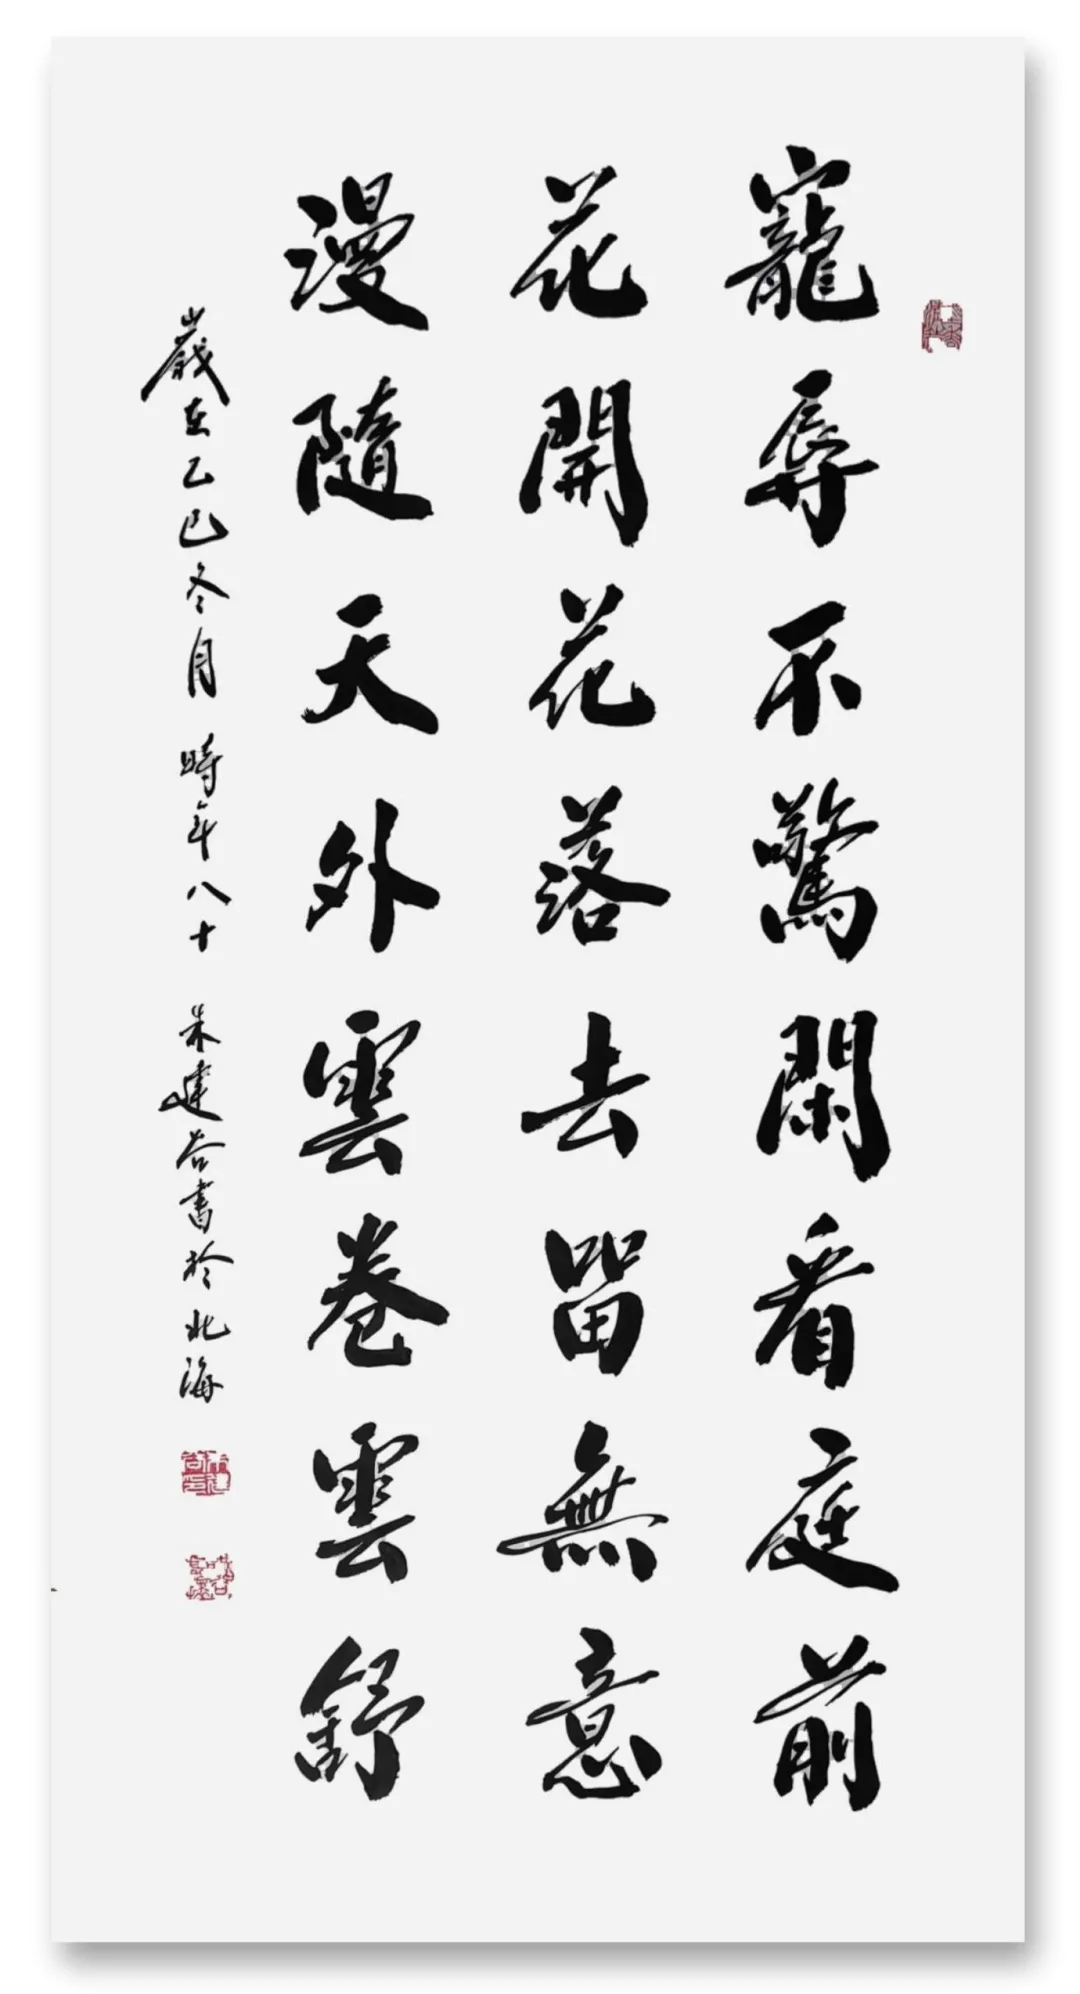 寵辱不驚閑看庭前
花開花落去留無意
漫隨天外雲卷雲舒
歲在乙巳冬月 時年八十 朱建谷書於北海